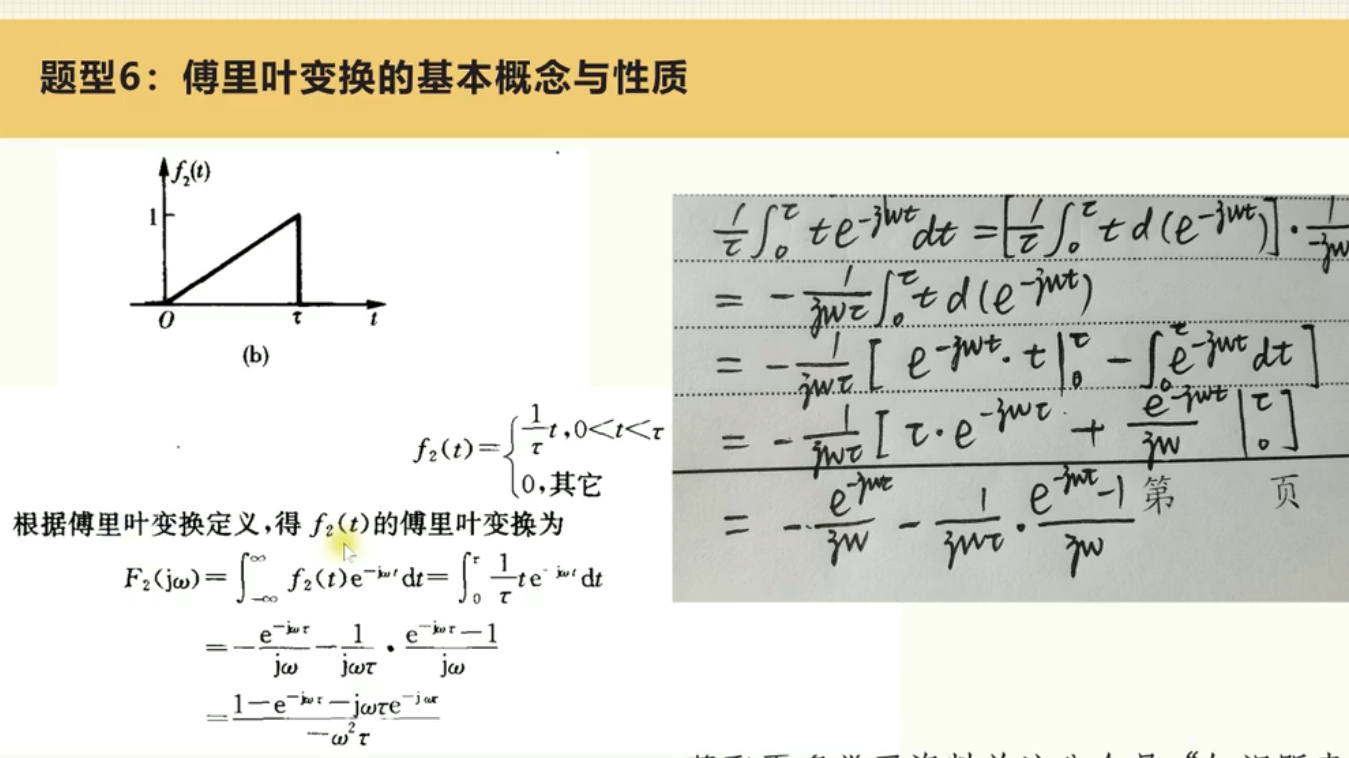 题型6：傅里叶变换的基本概念与性质
f₂(t)
1
O τ t
(b)
f₂(t)={ 1/τ t,0<t<τ
0,其它
根据傅里叶变换定义,得 f₂(t)的傅里叶变换为
F₂(jω)=∫_{-∞}^{∞} f₂(t)e^{-jωt}dt=∫_0^τ 1/τ te^{-jωt}dt
=-e^{-jωτ}/jω - 1/jωτ · (e^{-jωτ}-1)/jω
=(1-e^{-jωτ}-jωτe^{-jωτ})/(-ω²τ)
1/τ ∫_0^τ te^{-jwt}dt = [1/τ ∫_0^τ t d(e^{-jwt})]·1/(-jw)
= -1/(jwτ) ∫_0^τ t d(e^{-jwt})
= -1/(jwτ) [e^{-jwt}·t|_0^τ - ∫_0^τ e^{-jwt}dt]
= -1/(jwτ) [τ·e^{-jwτ} + e^{-jwt}/jw |_0^τ]
= -e^{-jwτ}/jw - 1/(jwτ) · (e^{-jwτ}-1)/jw
第 页